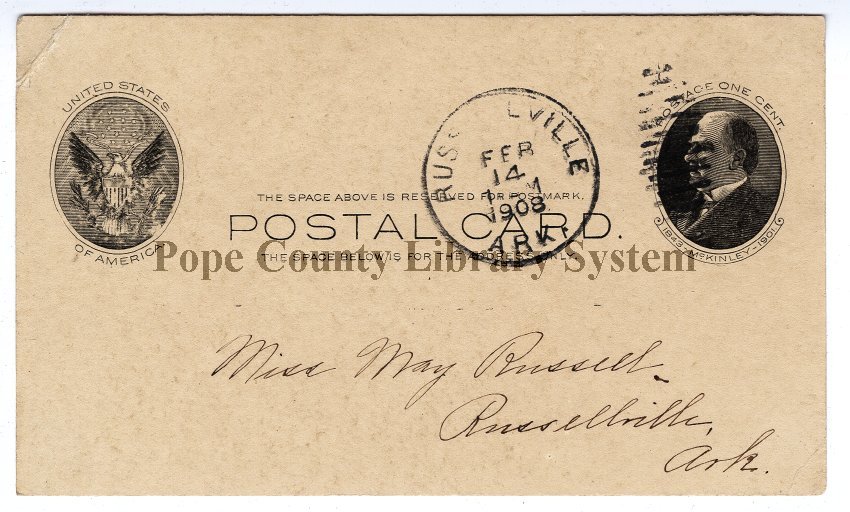 UNITED STATES
OF AMERICA
THE SPACE ABOVE IS RESERVED FOR POSTMARK.
POSTAL CARD.
THE SPACE BELOW IS FOR THE ADDRESS ONLY.
RUSS LVILLE
FEB
14
1908
ARK.
POSTAGE ONE CENT.
1843-McKINLEY-1901
Pope County Library System
Miss May Russell
Russellville,
Ark.